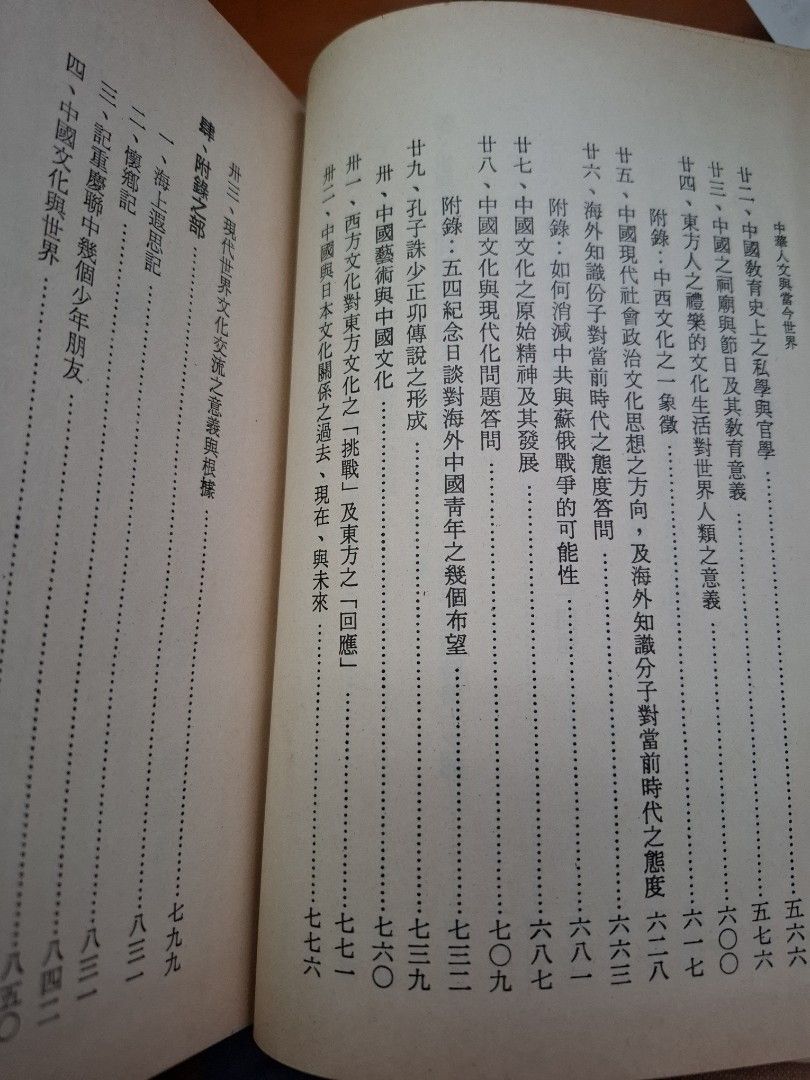 中華人文與當今世界
廿二、中國敎育史上之私學與官學……五六六
廿三、中國之祠廟與節日及其敎育意義……五七六
廿四、東方人之禮樂的文化生活對世界人類之意義……六〇〇
附錄：中西文化之一象徵……六一七
廿五、中國現代社會政治文化思想之方向，及海外知識分子對當前時代之態度 六二八
廿六、海外知識份子對當前時代之態度答問……六六三
附錄：如何消減中共與蘇俄戰爭的可能性……六八一
廿七、中國文化之原始精神及其發展……六八七
廿八、中國文化與現代化問題答問……七〇九
附錄：五四紀念日談對海外中國靑年之幾個布望……七三二
廿九、孔子誅少正卯傳說之形成……七三九
卅、中國藝術與中國文化……七六〇
卅一、西方文化對東方文化之「挑戰」及東方之「回應」……七七一
卅二、中國與日本文化關係之過去、現在、與未來……七七六
卅三、現代世界文化交流之意義與根據……七九九
肆、附錄之部
一、海上遐思記……八三一
二、懷鄕記……八三一
三、記重慶聯中幾個少年朋友……八四二
四、中國文化與世界……八五〇